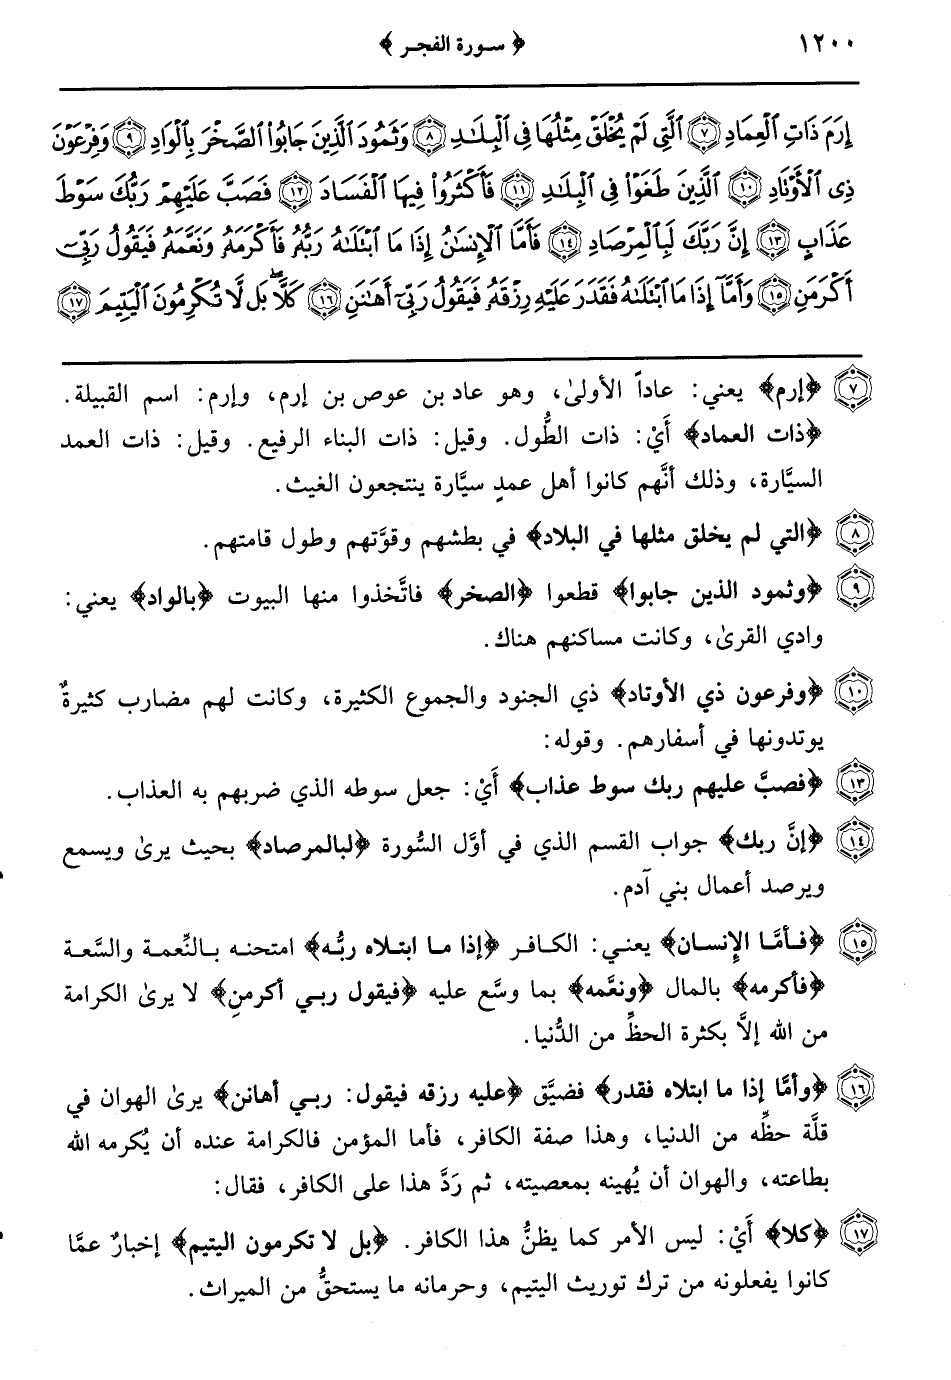 ١٢٠٠ ﴿ سورة الفجر ﴾
إِرَمَ ذَاتِ الْعِمَادِ ٧ الَّتِي لَمْ يُخْلَقْ مِثْلُهَا فِي الْبِلَادِ ٨ وَثَمُودَ الَّذِينَ جَابُوا الصَّخْرَ بِالْوَادِ ٩ وَفِرْعَوْنَ
ذِي الْأَوْتَادِ ١٠ الَّذِينَ طَغَوْا فِي الْبِلَادِ ١١ فَأَكْثَرُوا فِيهَا الْفَسَادَ ١٢ فَصَبَّ عَلَيْهِمْ رَبُّكَ سَوْطَ
عَذَابٍ ١٣ إِنَّ رَبَّكَ لَبِالْمِرْصَادِ ١٤ فَأَمَّا الْإِنسَانُ إِذَا مَا ابْتَلَاهُ رَبُّهُ فَأَكْرَمَهُ وَنَعَّمَهُ فَيَقُولُ رَبِّي
أَكْرَمَنِ ١٥ وَأَمَّا إِذَا مَا ابْتَلَاهُ فَقَدَرَ عَلَيْهِ رِزْقَهُ فَيَقُولُ رَبِّي أَهَانَنِ ١٦ كَلَّا بَل لَّا تُكْرِمُونَ الْيَتِيمَ ١٧
٧ ﴿إرم﴾ يعني: عاداً الأولىٰ، وهو عاد بن عوص بن إرم، وإرم: اسم القبيلة.
﴿ذات العماد﴾ أَيْ: ذات الطُّول. وقيل: ذات البناء الرفيع. وقيل: ذات العمد
السيَّارة، وذلك أنَّهم كانوا أهل عمدٍ سيَّارة ينتجعون الغيث.
٨ ﴿التي لم يخلق مثلها في البلاد﴾ في بطشهم وقوَّتهم وطول قامتهم.
٩ ﴿وثمود الذين جابوا﴾ قطعوا ﴿الصخر﴾ فاتَّخذوا منها البيوت ﴿بالواد﴾ يعني:
وادي القرىٰ، وكانت مساكنهم هناك.
١٠ ﴿وفرعون ذي الأوتاد﴾ ذي الجنود والجموع الكثيرة، وكانت لهم مضارب كثيرةٌ
يوتدونها في أسفارهم. وقوله:
١٣ ﴿فصبَّ عليهم ربك سوط عذاب﴾ أَيْ: جعل سوطه الذي ضربهم به العذاب.
١٤ ﴿إنَّ ربك﴾ جواب القسم الذي في أوَّل السُّورة ﴿لبالمرصاد﴾ بحيث يرىٰ ويسمع
ويرصد أعمال بني آدم.
١٥ ﴿فأمَّا الإِنسان﴾ يعني: الكافر ﴿إذا ما ابتلاه ربُّه﴾ امتحنه بالنِّعمة والسَّعة
﴿فأكرمه﴾ بالمال ﴿ونعَّمه﴾ بما وسَّع عليه ﴿فيقول ربي أكرمنِ﴾ لا يرىٰ الكرامة
من الله إلاَّ بكثرة الحظِّ من الدُّنيا.
١٦ ﴿وأمَّا إذا ما ابتلاه فقدر﴾ فضيَّق ﴿عليه رزقه فيقول: ربي أهانن﴾ يرىٰ الهوان في
قلَّة حظِّه من الدنيا، وهذا صفة الكافر، فأما المؤمن فالكرامة عنده أن يُكرمه الله
بطاعته، والهوان أن يُهينه بمعصيته، ثم رَدَّ هذا على الكافر، فقال:
١٧ ﴿كلا﴾ أَيْ: ليس الأمر كما يظنُّ هذا الكافر. ﴿بل لا تكرمون اليتيم﴾ إخبارٌ عمَّا
كانوا يفعلونه من ترك توريث اليتيم، وحرمانه ما يستحقُّ من الميراث.